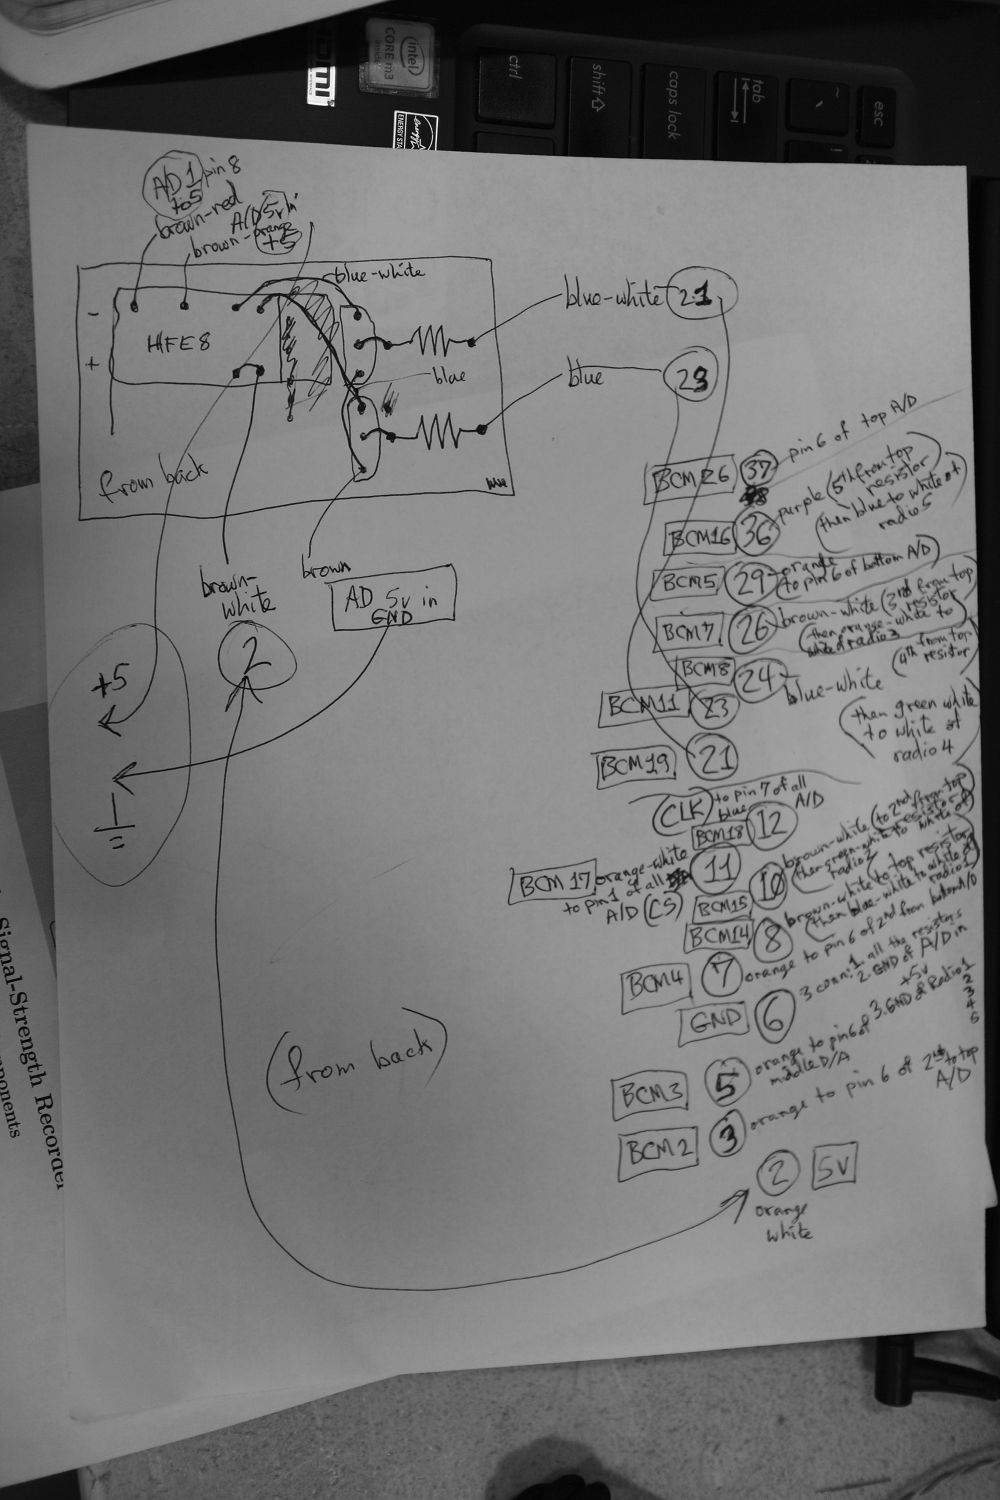 intel
CORE m3
inside
ENERGY STAR
ctrl
shift
caps lock
tab
esc
A/D 1 pin 8
to 5
brown-red
A/D 5v in
brown-orange
+5
blue-white
-
HFE8
+
blue
from back
blue-white 21
blue 23
brown-
white
brown
AD 5v in
GND
+5
2
(from back)
BCM26 37 pin 6 of top A/D
BCM16 36 purple (5th from top
resistor
(then blue to white of
radio 5
BCM5 29 orange
to pin 6 of bottom A/D)
BCM7 26 brown-white (3rd from top
resistor
(then orange-white to
white of radio 3
BCM8 24 blue-white
(4th from top
resistor
(then green white
to white of
radio 4
BCM11 23
BCM19 21
CLK to pin 7 of all
blue A/D
BCM18 12 brown-white (to 2nd from top
resistor
(then green-white to white of
radio 2
BCM17 orange-white 11
to pin 1 of all
A/D (CS)
BCM15 10 brown-white to top resistor
(then blue-white to white of
radio 1
BCM14 8
BCM4 7 orange to pin 6 of 2nd from bottom A/D
GND 6 3 conn: 1. all the resistors
2. GND of A/D in
+5v
3. GND of Radio 1
2
3
4
5
BCM3 5 orange to pin 6 of
middle D/A
BCM2 3 orange to pin 6 of 2nd to top
A/D
2 5V
orange
white
Signal-Strength Recorder